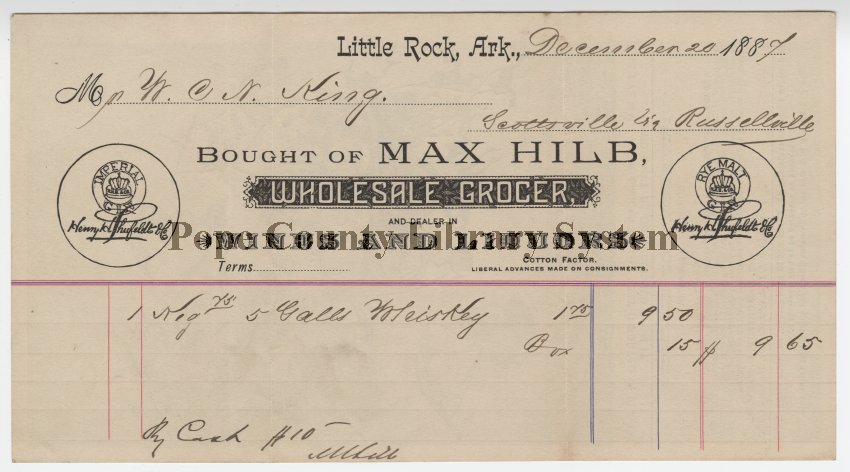 Little Rock, Ark., December 20 1887
Mr W. C. N. King.
Scottsville via Russellville
BOUGHT OF MAX HILB,
WHOLESALE GROCER,
AND DEALER IN
WINES AND LIQUORS
Pope County Library System
Terms
COTTON FACTOR.
LIBERAL ADVANCES MADE ON CONSIGNMENTS.
IMPERIAL
GIN
Henry H. Shufeldt & Co
RYE MALT
GIN
Henry H. Shufeldt & Co
1 Keg 75 5 Galls Whiskey 1 75 9 50
Box 15 $ 9 65
By Cash $10
M Hilb